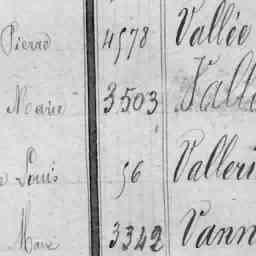 Pierre 4578 Vallée
Marie 3503 Vall
Louis 56 Valleri
Marie 3342 Vann